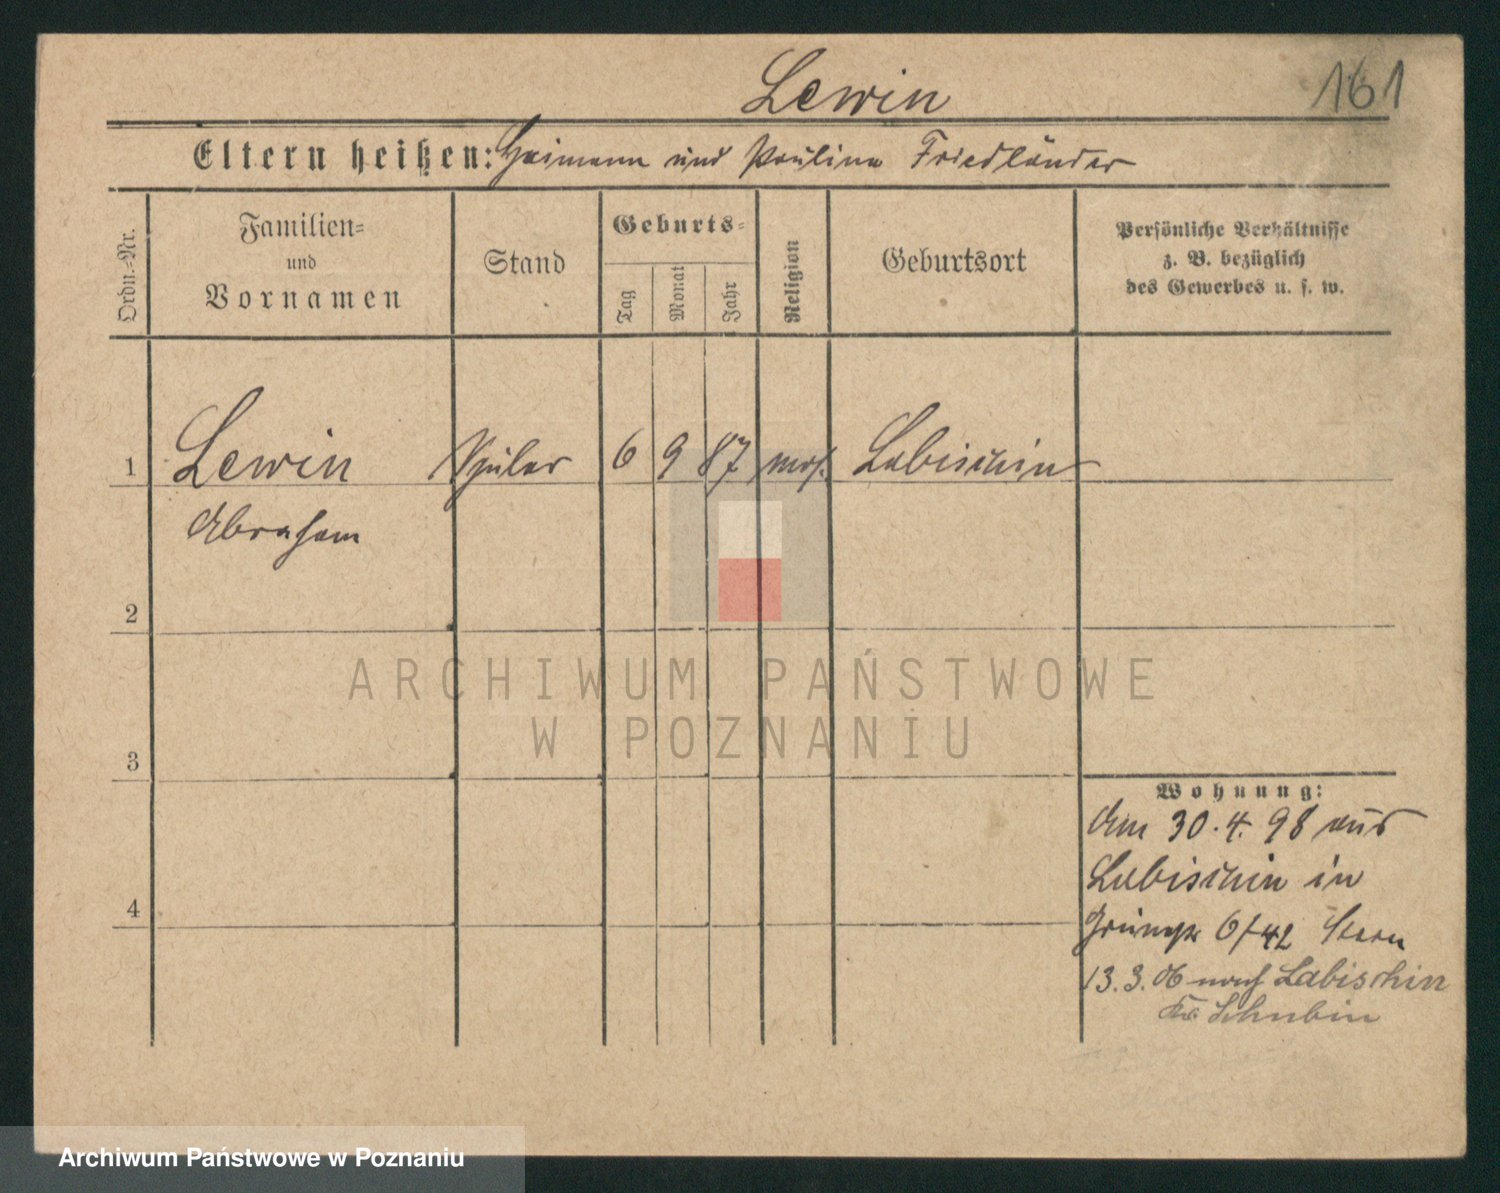 Lewin
161
Eltern heißen: Heimann und Pauline Friedländer
Ordn.-Nr.
Familien-
und
Vornamen
Stand
Geburts-
Tag
Monat
Jahr
Religion
Geburtsort
Persönliche Verhältnisse
z. B. bezüglich
des Gewerbes u. s. w.
1 Lewin Schüler 6 9 87 mos. Labischin
Abraham
2
3
4
Wohnung:
Am 30. 4. 98 aus
Labischin in
6/42 Stern
13. 3. 06 nach Labischin
Kr. Schubin
ARCHIWUM PAŃSTWOWE
W POZNANIU
Archiwum Państwowe w Poznaniu